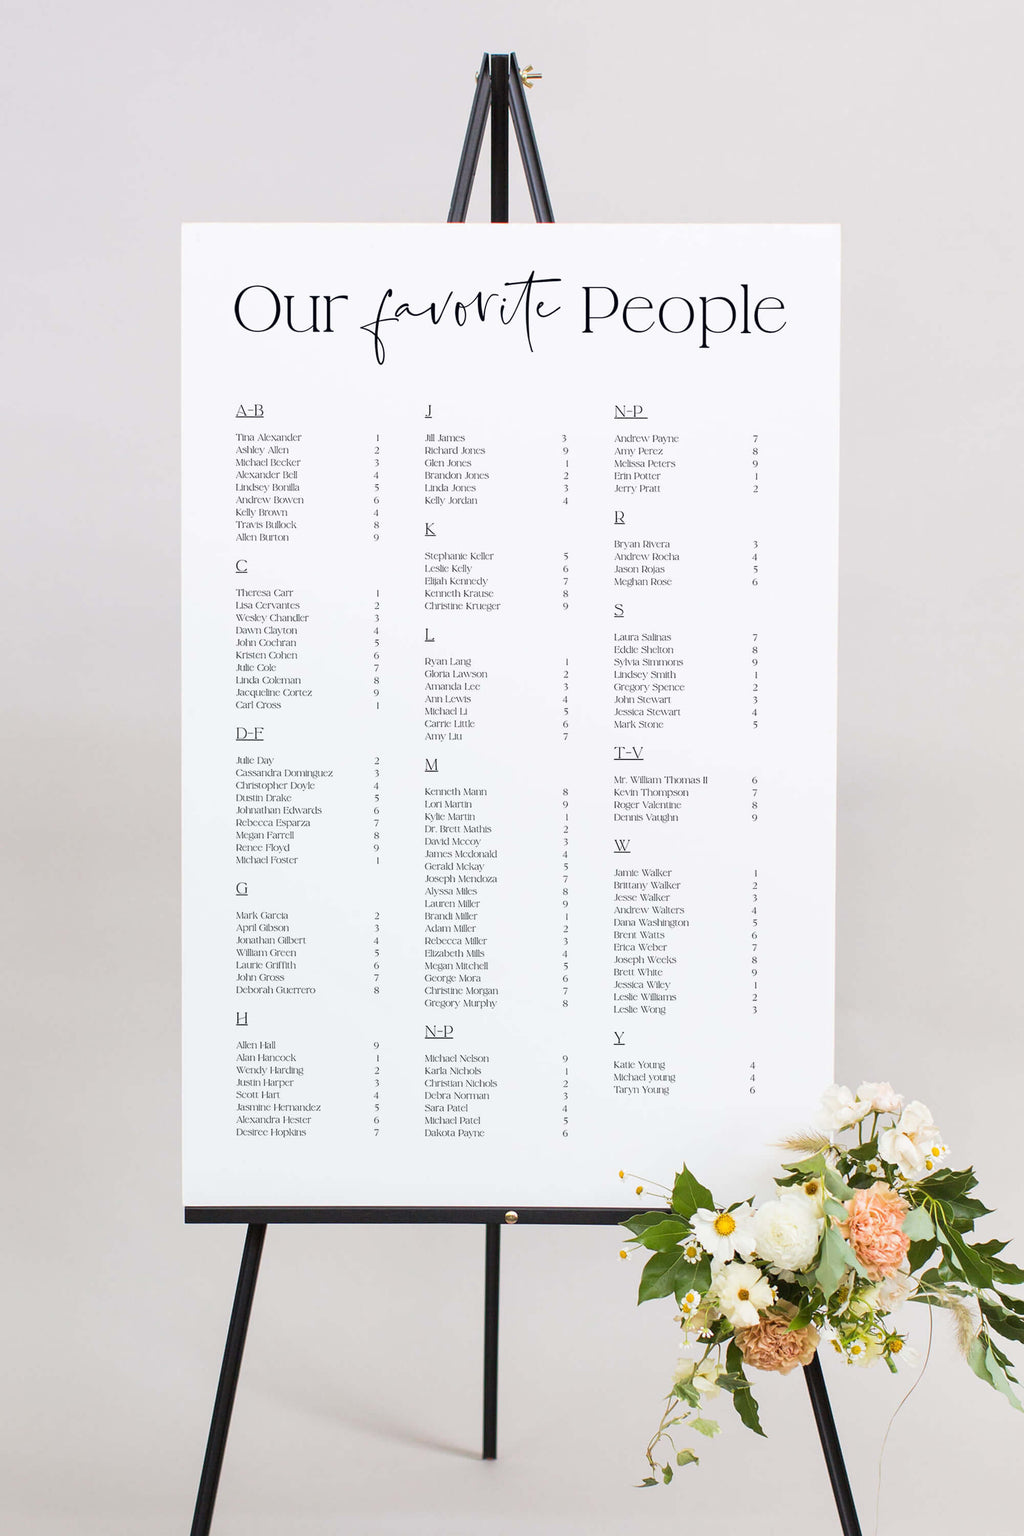 Our favorite People
A-B
Tina Alexander 1
Ashley Allen 2
Michael Becker 3
Alexander Bell 4
Lindsey Bonilla 5
Andrew Bowen 6
Kelly Brown 4
Travis Bullock 8
Allen Burton 9
C
Theresa Carr 1
Lisa Cervantes 2
Wesley Chandler 3
Dawn Clayton 4
John Cochran 5
Kristen Cohen 6
Julie Cole 7
Linda Coleman 8
Jacqueline Cortez 9
Carl Cross 1
D-F
Julie Day 2
Cassandra Dominguez 3
Christopher Doyle 4
Dustin Drake 5
Johnathan Edwards 6
Rebecca Esparza 7
Megan Farrell 8
Renee Floyd 9
Michael Foster 1
G
Mark Garcia 2
April Gibson 3
Jonathan Gilbert 4
William Green 5
Laurie Griffith 6
John Gross 7
Deborah Guerrero 8
H
Allen Hall 9
Alan Hancock 1
Wendy Harding 2
Justin Harper 3
Scott Hart 4
Jasmine Hernandez 5
Alexandra Hester 6
Desiree Hopkins 7
J
Jill James 3
Richard Jones 9
Glen Jones 1
Brandon Jones 2
Linda Jones 3
Kelly Jordan 4
K
Stephanie Keller 5
Leslie Kelly 6
Elijah Kennedy 7
Kenneth Krause 8
Christine Krueger 9
L
Ryan Lang 1
Gloria Lawson 2
Amanda Lee 3
Ann Lewis 4
Michael Li 5
Carrie Little 6
Amy Liu 7
M
Kenneth Mann 8
Lori Martin 9
Kylie Martin 1
Dr. Brett Mathis 2
David Mccoy 3
James Mcdonald 4
Gerald Mckay 5
Joseph Mendoza 7
Alyssa Miles 8
Lauren Miller 9
Brandi Miller 1
Adam Miller 2
Rebecca Miller 3
Elizabeth Mills 4
Megan Mitchell 5
George Mora 6
Christine Morgan 7
Gregory Murphy 8
N-P
Michael Nelson 9
Karla Nichols 1
Christian Nichols 2
Debra Norman 3
Sara Patel 4
Michael Patel 5
Dakota Payne 6
N-P
Andrew Payne 7
Amy Perez 8
Melissa Peters 9
Erin Potter 1
Jerry Pratt 2
R
Bryan Rivera 3
Andrew Rocha 4
Jason Rojas 5
Meghan Rose 6
S
Laura Salinas 7
Eddie Shelton 8
Sylvia Simmons 9
Lindsey Smith 1
Gregory Spence 2
John Stewart 3
Jessica Stewart 4
Mark Stone 5
T-V
Mr. William Thomas II 6
Kevin Thompson 7
Roger Valentine 8
Dennis Vaughn 9
W
Jamie Walker 1
Brittany Walker 2
Jesse Walker 3
Andrew Walters 4
Dana Washington 5
Brent Watts 6
Erica Weber 7
Joseph Weeks 8
Brett White 9
Jessica Wiley 1
Leslie Williams 2
Leslie Wong 3
Y
Katie Young 4
Michael young 4
Taryn Young 6